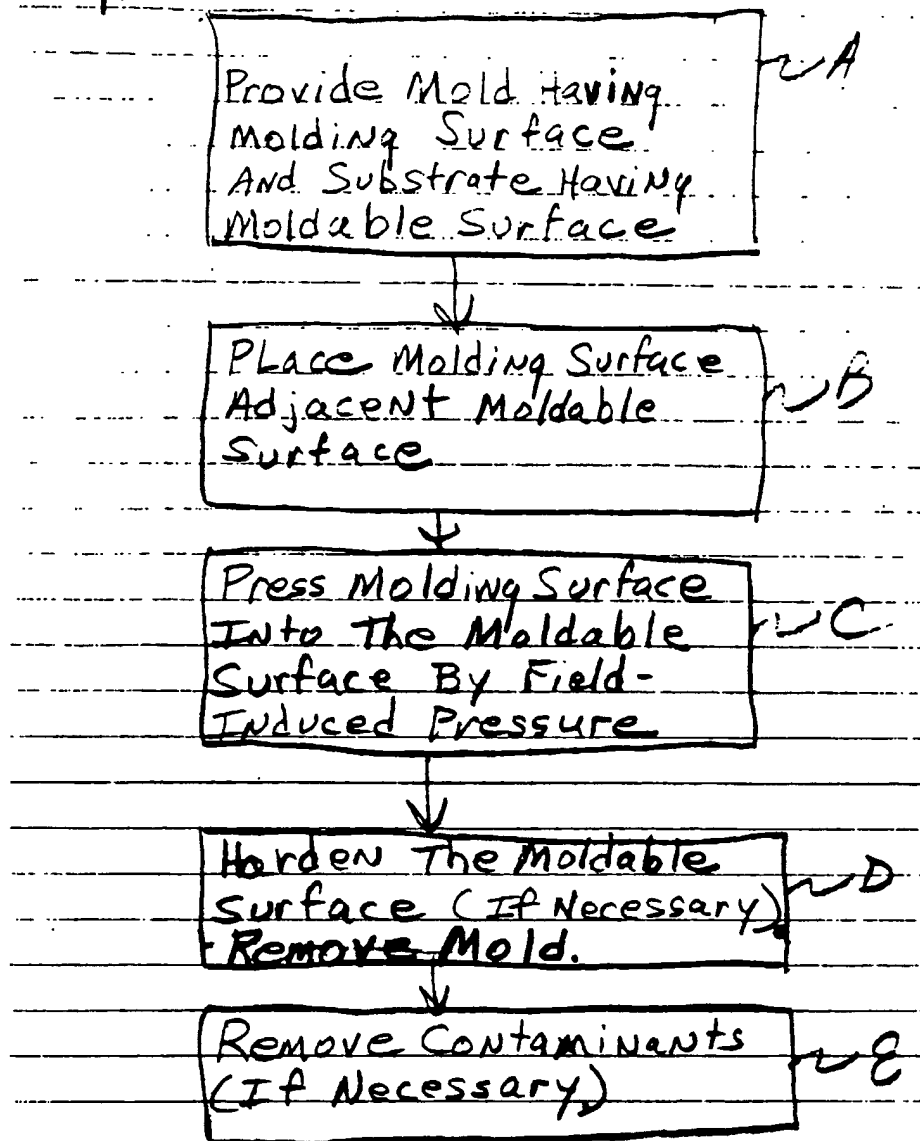 Provide Mold Having
A
Molding Surface
And Substrate Having
Moldable Surface
Place Molding Surface
B
Adjacent Moldable
Surface
Press Molding Surface
C
Into The Moldable
Surface By Field-
Induced Pressure
Harden The Moldable
D
Surface (If Necessary).
Remove Mold.
Remove Contaminants
E
(If Necessary.)